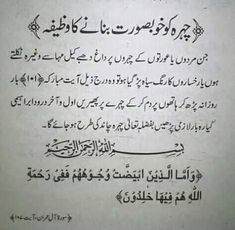 چہرہ کو خوبصورت بنانے کا وظیفہ
جن مردوں یا عورتوں کے چہروں پر داغ دھبے کیل مہاسے وغیرہ نکلتے
ہوں یا رخساروں کا رنگ سیاہ پڑ گیا ہو تو وہ درج ذیل آیت مبارکہ ﴿۱۰۱﴾ بار
روزانہ پڑھ کر ہاتھوں پر دم کر کے چہرے پر پھیریں اول و آخر درود ابراہیمی
گیارہ بار لازمی پڑھیں بفضلہ تعالیٰ چہرہ چاند کی طرح ہو جائے گا۔
بِسْمِ اللّٰهِ الرَّحْمٰنِ الرَّحِيْمِ
﴿وَاَمَّا الَّذِيْنَ ابْيَضَّتْ وُجُوْهُهُمْ فَفِيْ رَحْمَةِ
اللّٰهِ هُمْ فِيْهَا خٰلِدُوْنَ﴾
﴿سورۃ آل عمران، آیت ۱۰۷﴾